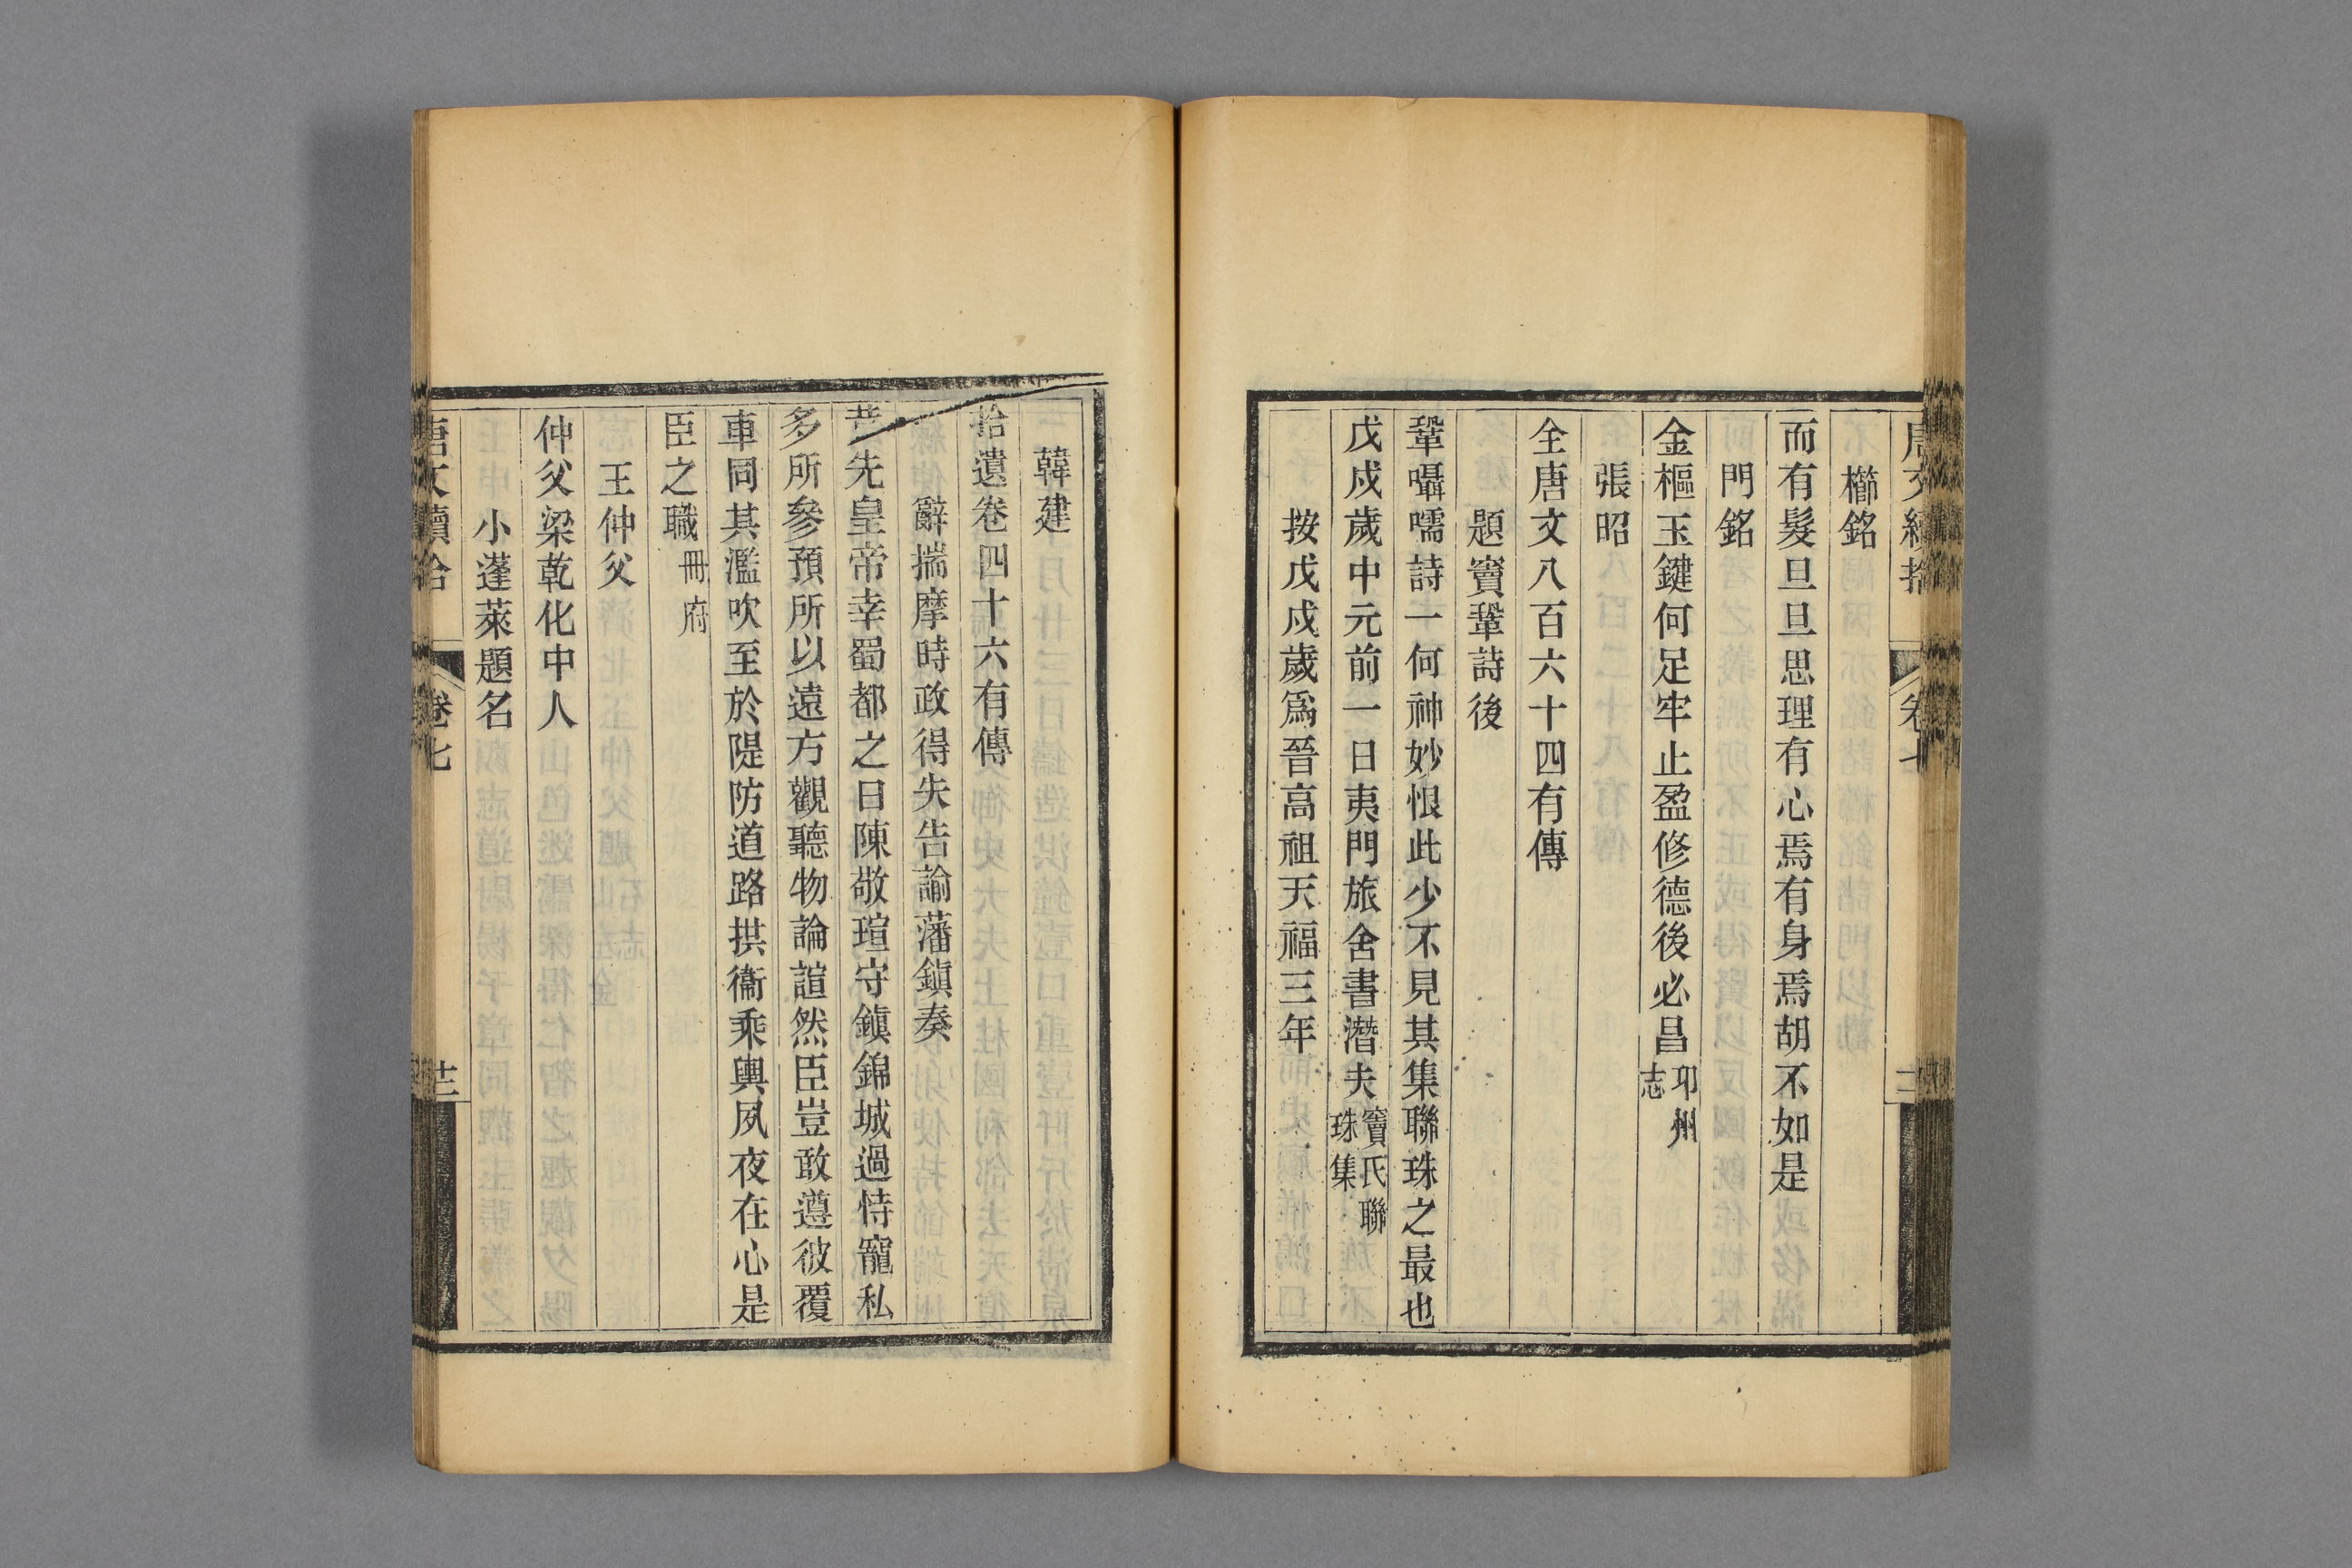 櫛銘
而有髮旦旦思理有心焉有身焉胡不如是
門銘
金樞玉鍵何足牢止盈修德後必昌邛州志
張昭
全唐文八百六十四有傳
題竇鞏詩後
鞏囁嚅詩一何神妙恨此少不見其集聯珠之最也
戊戍歲中元前一日夷門旅舍書潛夫竇氏聯珠集
按戊戍歲爲晉高祖天福三年
韓建
拾遺卷四十六有傳
辭揣摩時政得失告諭藩鎭奏
昔先皇帝幸蜀都之日陳敬瑄守鎭錦城過恃寵私
多所參預所以遠方觀聽物論諠然臣豈敢遵彼覆
車同其濫吹至於隄防道路拱衞乘輿夙夜在心是
臣之職冊府
王仲父
仲父梁乾化中人
小蓬萊題名
唐文續拾 卷七